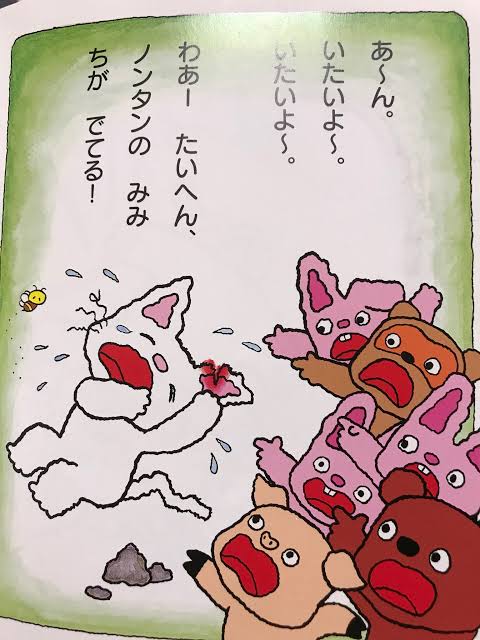 あ〜ん。
いたいよ〜。
いたいよ〜。
わあー　たいへん、
ノンタンの　みみ
ちが　でてる！